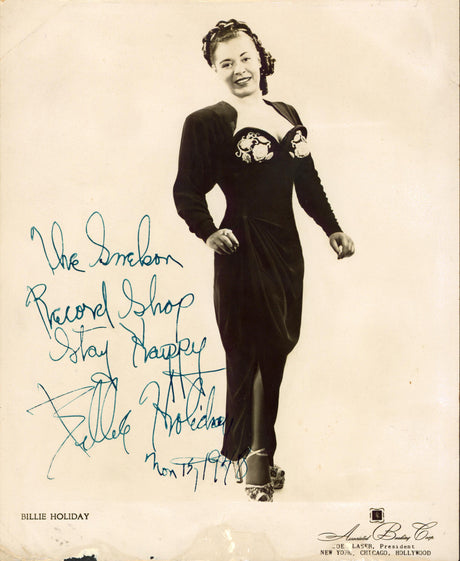 The
Record Shop
Stay Happy
Billie Holiday
Nov 15, 1948
BILLIE HOLIDAY
Associated Booking Corp.
JOE LASER, President
NEW YORK, CHICAGO, HOLLYWOOD